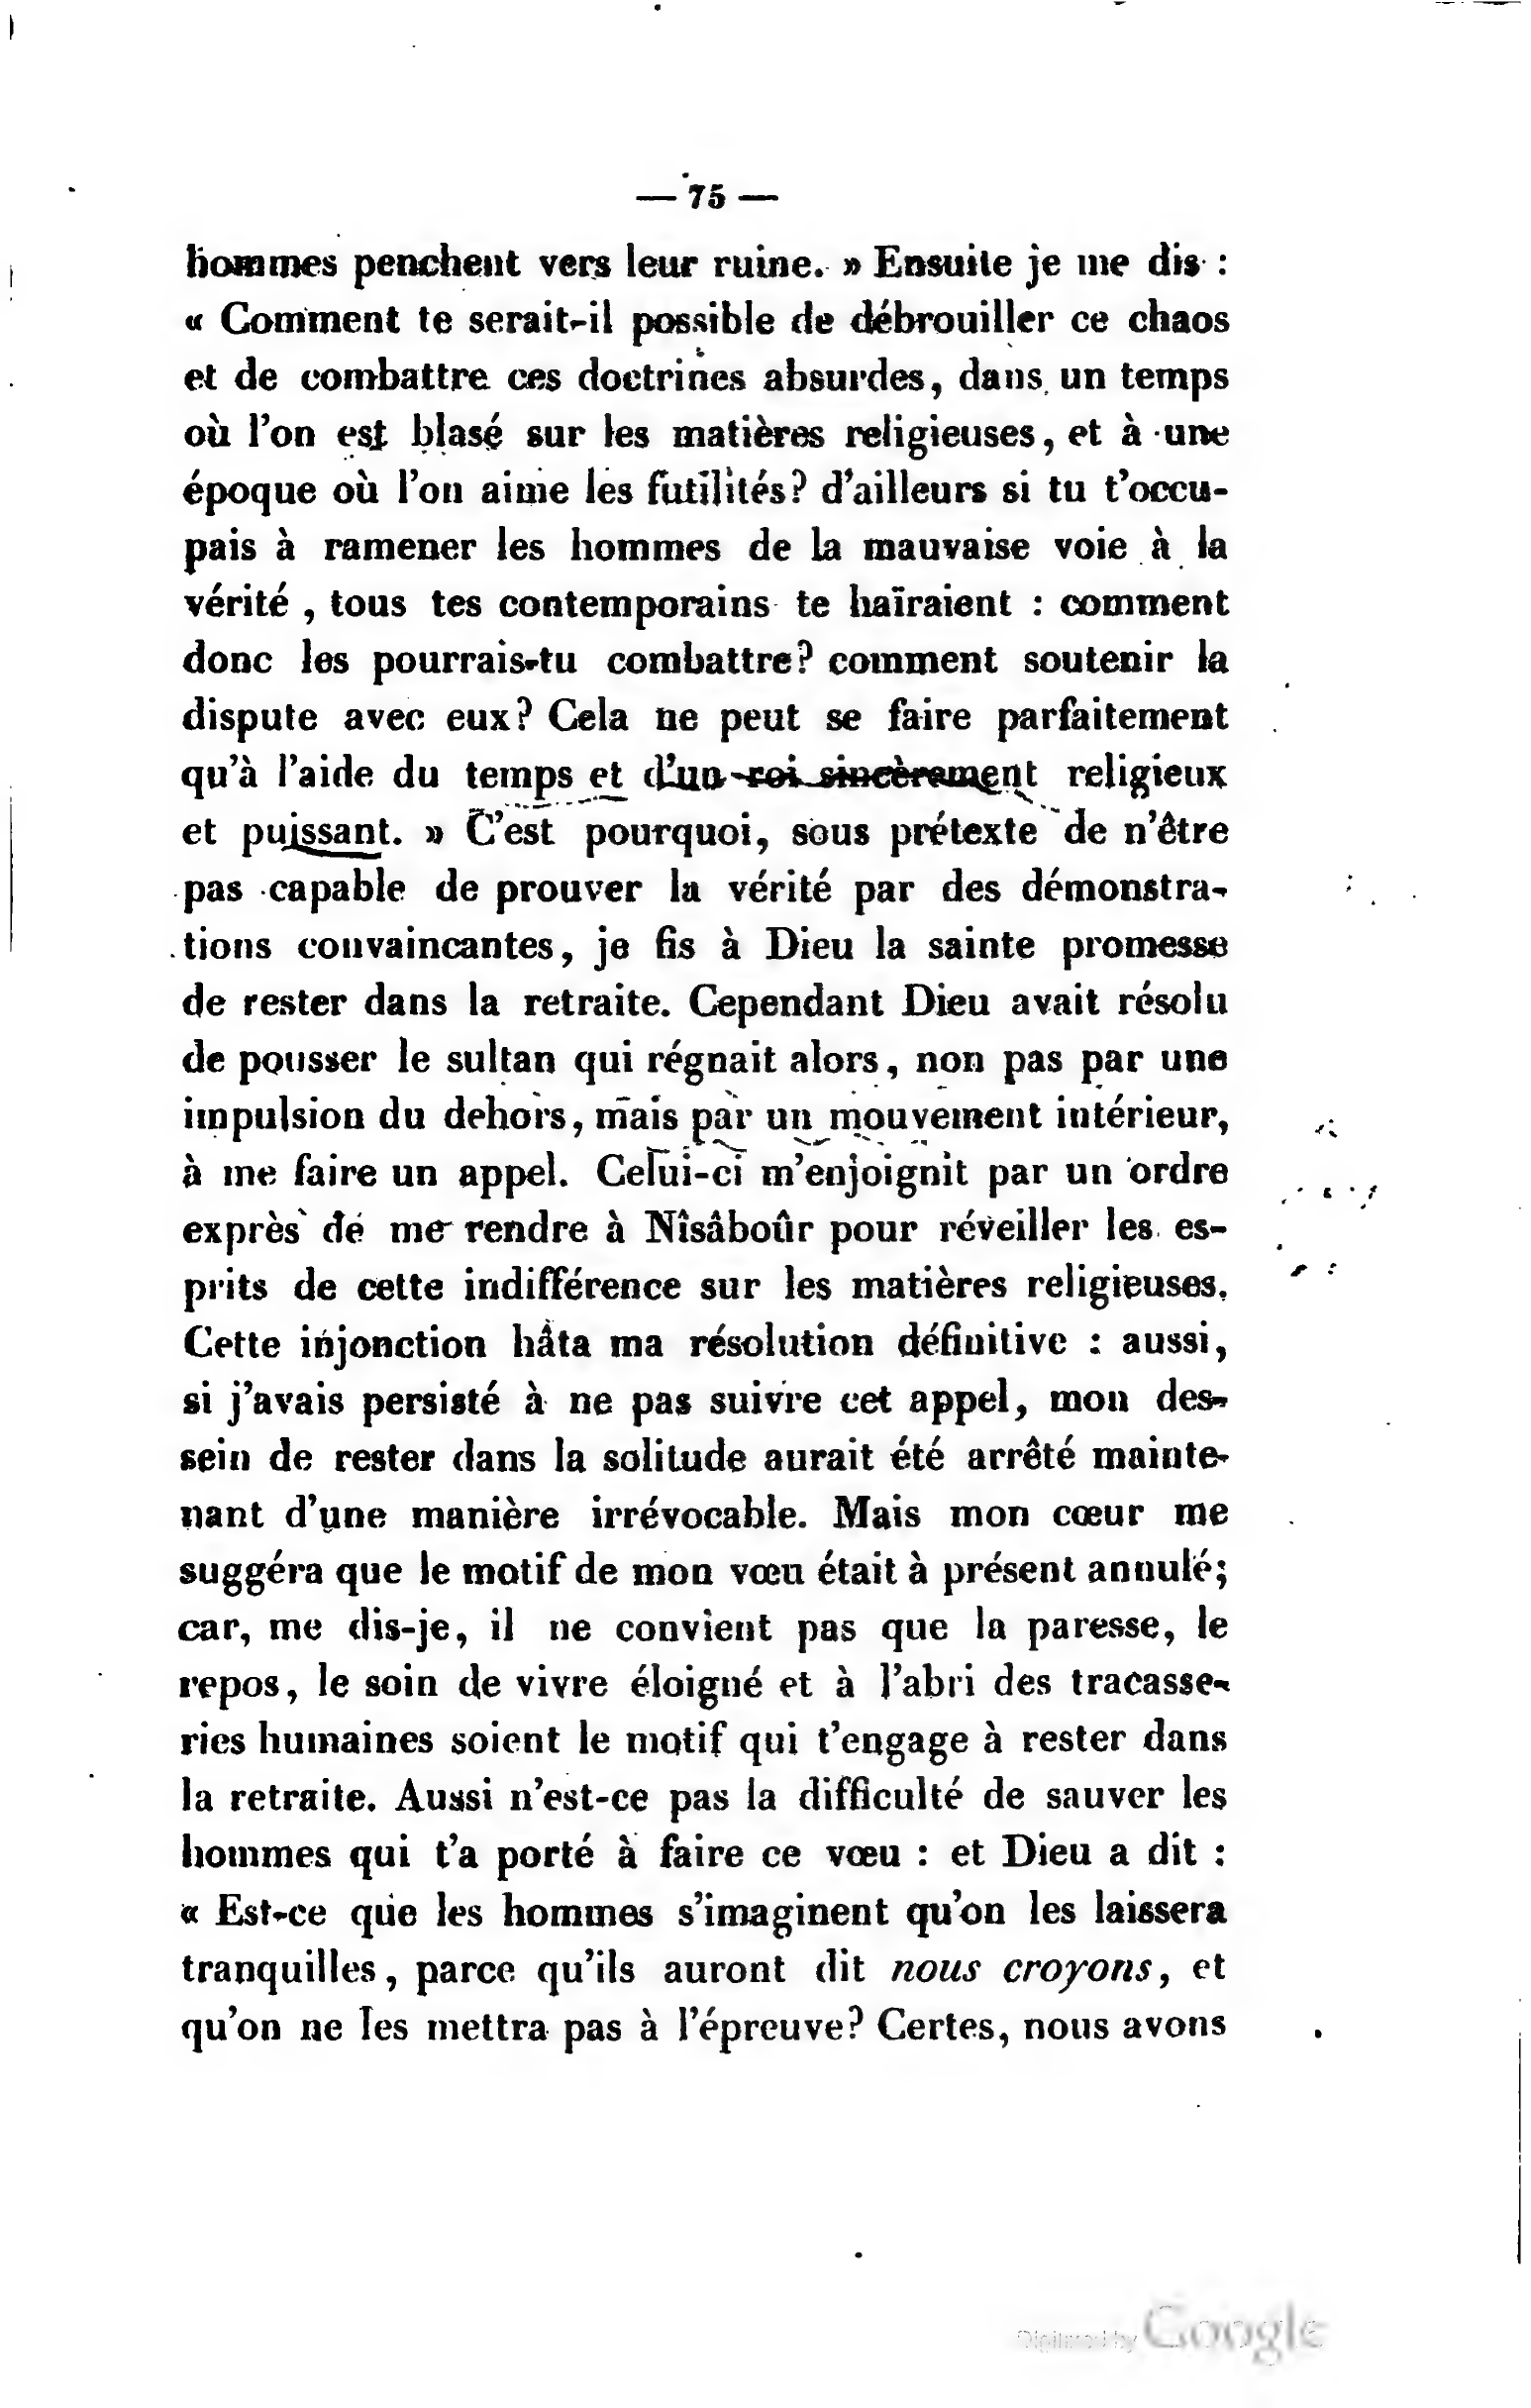 — 75 —
hommes penchent vers leur ruine. » Ensuite je me dis :
« Comment te serait-il possible de débrouiller ce chaos
et de combattre ces doctrines absurdes, dans un temps
où l’on est blasé sur les matières religieuses, et à une
époque où l’on aime les futilités? d’ailleurs si tu t’occu-
pais à ramener les hommes de la mauvaise voie à la
vérité , tous tes contemporains te haïraient : comment
donc les pourrais-tu combattre? comment soutenir la
dispute avec eux? Cela ne peut se faire parfaitement
qu’à l’aide du temps et d’un roi sincèrement religieux
et puissant. » C’est pourquoi, sous prétexte de n’être
pas capable de prouver la vérité par des démonstra-
tions convaincantes, je fis à Dieu la sainte promesse
de rester dans la retraite. Cependant Dieu avait résolu
de pousser le sultan qui régnait alors, non pas par une
impulsion du dehors, mais par un mouvement intérieur,
à me faire un appel. Celui-ci m’enjoignit par un ordre
exprès de me rendre à Nîsâboûr pour réveiller les es-
prits de cette indifférence sur les matières religieuses.
Cette injonction hâta ma résolution définitive : aussi,
si j’avais persisté à ne pas suivre cet appel, mon des-
sein de rester dans la solitude aurait été arrêté mainte-
nant d’une manière irrévocable. Mais mon cœur me
suggéra que le motif de mon vœu était à présent annulé;
car, me dis-je, il ne convient pas que la paresse, le
repos, le soin de vivre éloigné et à l’abri des tracasse-
ries humaines soient le motif qui t’engage à rester dans
la retraite. Aussi n’est-ce pas la difficulté de sauver les
hommes qui t’a porté à faire ce vœu : et Dieu a dit :
« Est-ce que les hommes s’imaginent qu’on les laissera
tranquilles, parce qu’ils auront dit nous croyons, et
qu’on ne les mettra pas à l’épreuve? Certes, nous avons
Digitized by Google